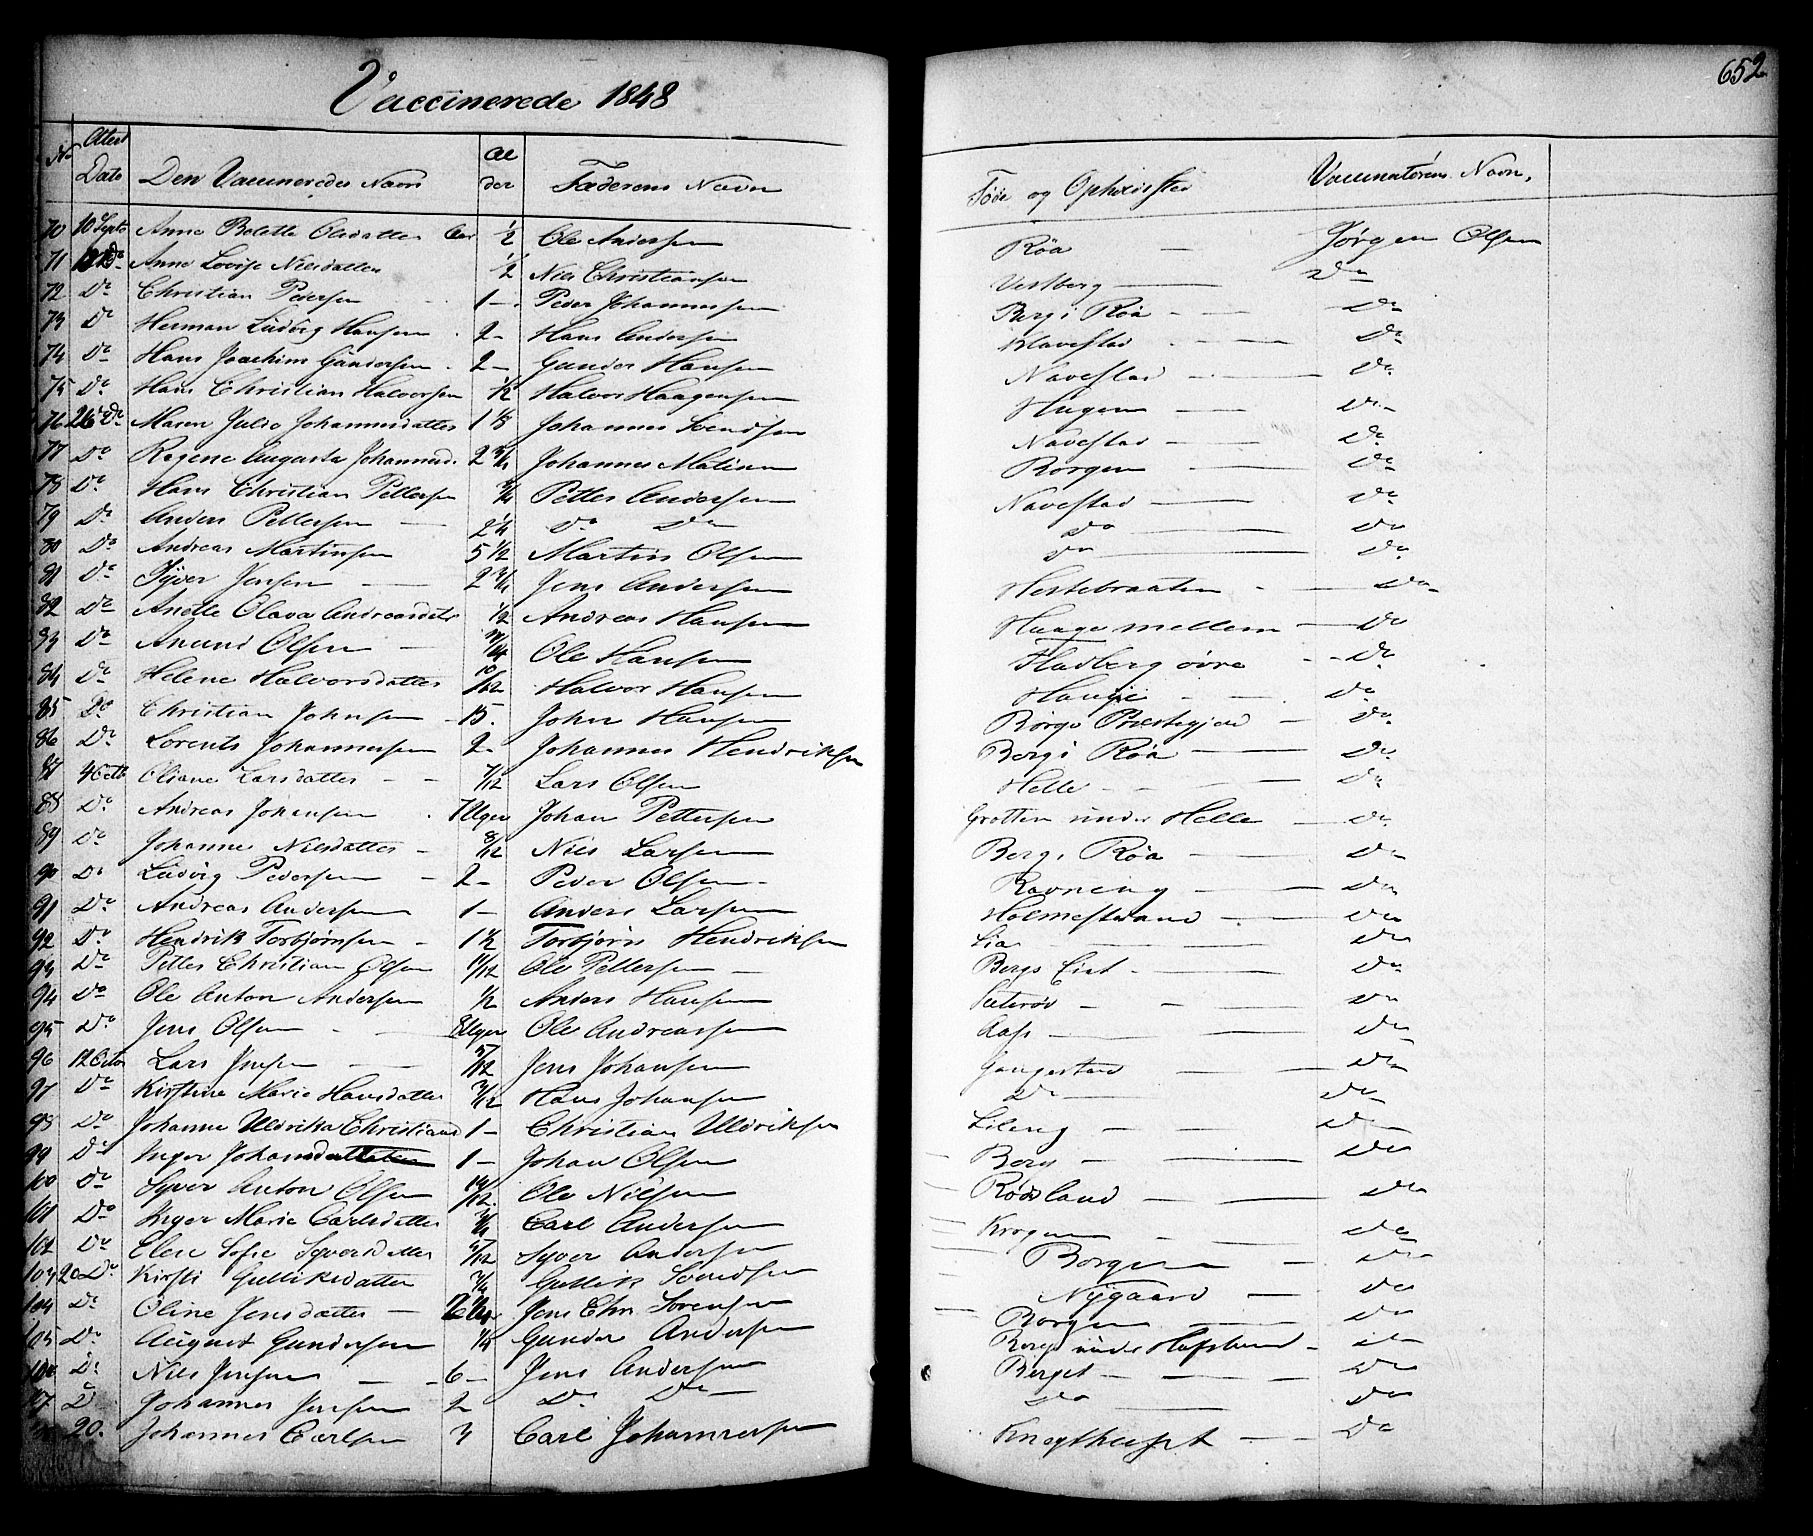 652
Vaccinerede 1848
No Attest Dato Den Vaccineredes Navn Alder Faderens Navn Føde og Opholdssted Vaccinatørens Navn.
70 10 Septb Anne Bolette Olsdatter Aar 1/2 Ole Andersen Röa — Jörgen Olsen
71 Do Anne Lovise Nielsdatter 1/2 Niels Christiansen Vestberg — Do
72 Do Christian Pedersen 1 — Peder Johannessen Berg i Röa — Do
73 Do Herman Ludvig Hansen 2 — Hans Andersen Klavestad — Do
74 Do Hans Joachim Gundersen 2 — Gunder Hansen Navestad — Do
75 Do Hans Christian Halvorsen 1/2 Halvor Haagensen Haugen — Do
76 26 Do Maren Julie Johannesdatter 1 Johannes Svendsen Navestad — Do
77 Do Regene Augusta Johannesd. 2 Johannes Matisen Borgen — Do
78 Do Hans Christian Pettersen 3/4 Petter Andersen Navestad — Do
79 Do Anders Pettersen — 2 1/4 Do Do Do — Do
80 Do Andreas Martinsen 5 1/2 Martin Olsen Do — Do
81 Do Syver Jensen — 2 Jens Andersen Hestebraaten — Do
82 Do Anette Olava Andreasdatr 1/2 Andreas Hansen Hauge mellem — Do
83 Do Anund Olsen — Ole Hansen Hadberg övre — Do
84 Do Helene Halvorsdatter 10/12 Halvor Hansen Hauge — Do
85 Do Christian Johnsen — 15. John Hansen Borge Præstegjeld — Do
86 Do Lorents Johannessen 2 — Johannes Hendriksen Berg i Röa — Do
87 4 Octb Oliane Larsdatter — 7/12 Lars Olsen Helle — Do
88 Do Andreas Johansen . 7 Uger Johan Pettersen Grotten under Helle — Do
89 Do Johanne Nilsdatter — 8/12 Nils Larsen Berg i Röa — Do
90 Do Ludvig Pedersen — 2 — Peder Olsen Ravneng — Do
91 Do Andreas Andersen 1 — Anders Larsen Holmestrand — Do
92 Do Hendrik Torbjørnsen — 1 1/2 Torbjørn Hendriksen Lia — Do
93 Do Petter Christian Olsen 11/12 Ole Pettersen — Bergs Eiet — Do
94 Do Ole Anton Andersen 1/2 Anders Hansen Sæteröd — Do
95 Do Jens Olsen — 8 Uger Ole Andreassen Aas — Do
96 12 Octbr Lars Jensen — 5/12 Jens Johansen Gangestad — Do
97 Do Kirstine Marie Hansdatter /12 Hans Johansen Do — Do
98 Do Johanne Uldrikka Christiansd 1 — Christian Uldriksen Lileng — Do
99 Do Inger Johansdatter 1 — Johan Olsen Berg — Do
100 Do Syver Anton Olsen /12 Ole Nilsen Rödsland — Do
101 Do Inger Marie Carlsdatter 3/4 Carl Andersen Krogen — Do
102 Do Elese Sofie Syversdatter /12 Syver Andersen Borgen — Do
103 20 Do Kirsti Gulliksdatter 3/4 Gullik Svendsen Nygaard — Do
104 Do Oline Jensdatter — Jens Chr Sörensen Borgen — Do
105 Do August Gundersen Gunder Andersen Borge under Hafslund — Do
106 Do Nils Jensen — 6 — Jens Andersen Berget — Do
107 Do Johannes Jensen 2 Do Do — Do — Do
20. Johannes Carlsen 3 Carl Johannessen — Do